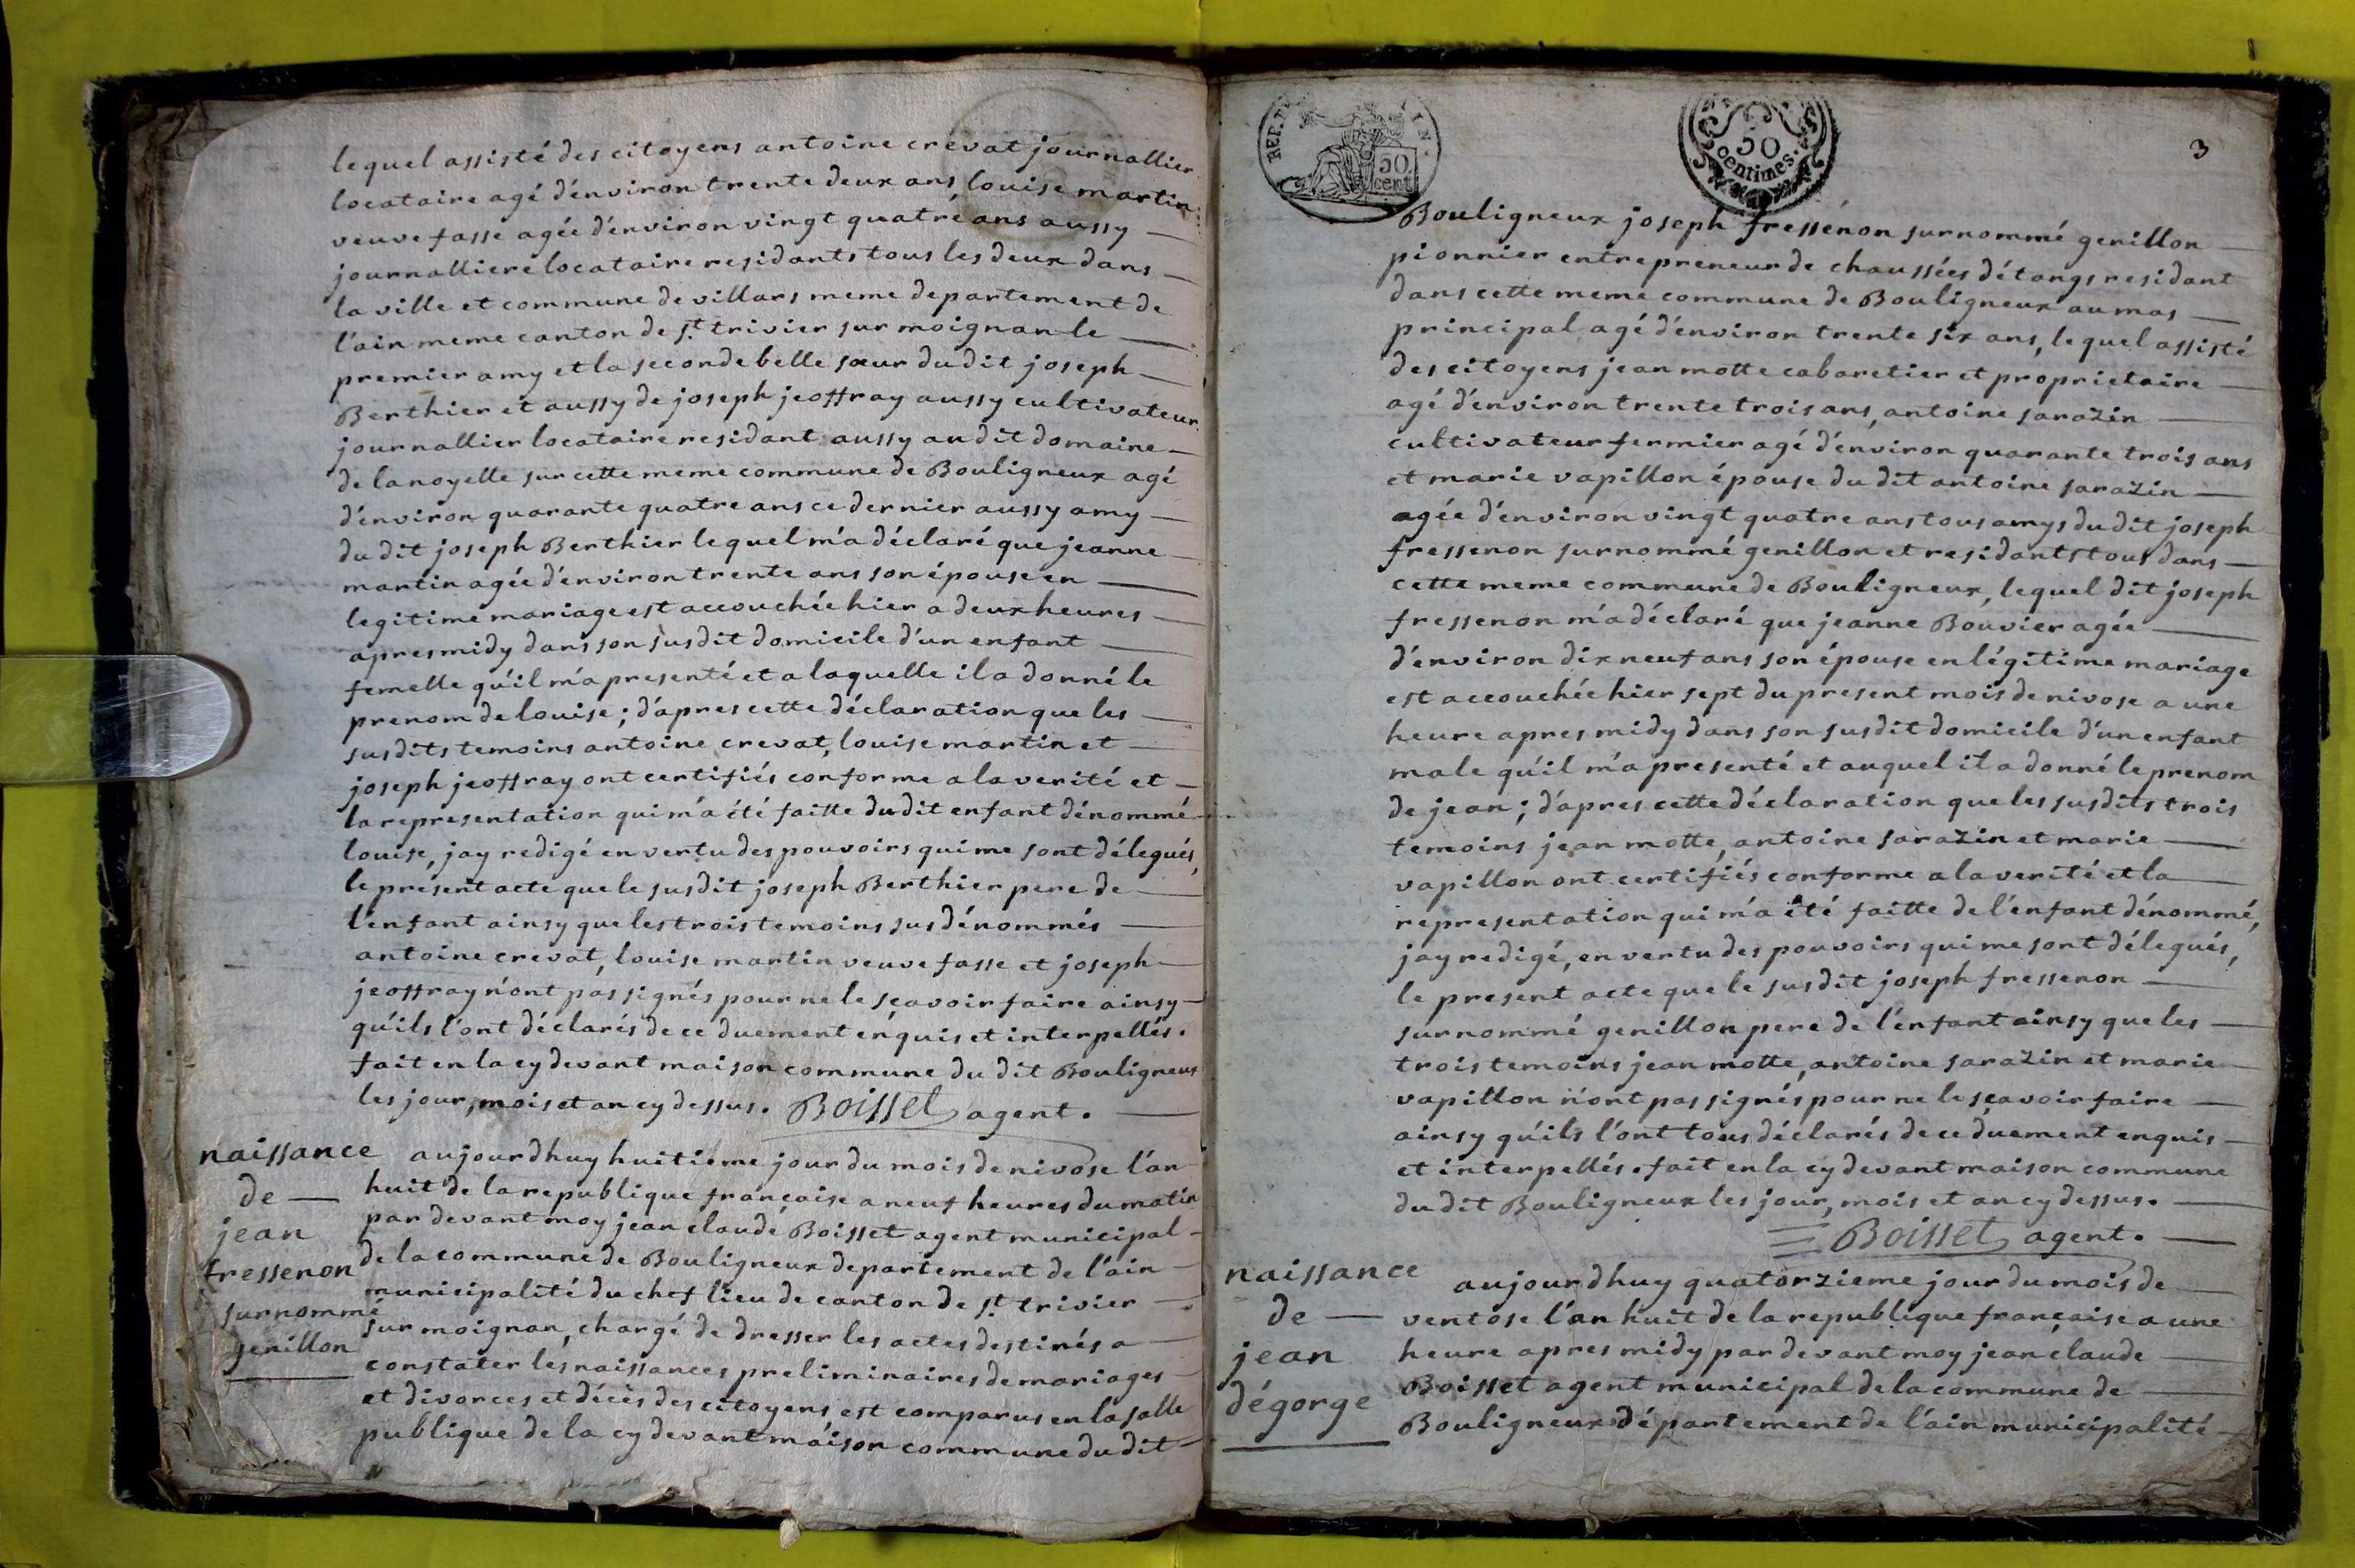 lequel assisté des citoyens antoine crevat journallier
locataire agé d'environ trente deux ans, louise martin
veuve fasse agée d'environ vingt quatre ans aussy
journalliere locataire residants tous les deux dans
la ville et commune de villars meme departement de
l'ain meme canton de st. trivier sur moignan le
premier amy et la seconde belle sœur du dit joseph
Berthier et aussy de joseph jeoffray aussy cultivateur
journallier locataire residant aussy au dit domaine
de la noyelle sur cette meme commune de Bouligneux agé
d'environ quarante quatre ans ce dernier aussy amy
du dit joseph Berthier lequel m'a déclaré que jeanne
martin agée d'environ trente ans son épouse en
legitime mariage est accouchée hier a deux heures
apres midy dans son susdit domicile d'un enfant
femelle qu'il m'a presenté et a laquelle il a donné le
prenom de louise ; d'apres cette déclaration que les
susdits temoins antoine crevat, louise martin et
joseph jeoffray ont certifiés conforme a la verité et
la representation qui m'a été faitte du dit enfant dénommé
louise, jay redigé en vertu des pouvoirs qui me sont délegués,
le présent acte que le susdit joseph Berthier pere de
l'enfant ainsy que les trois temoins sus dénommés
antoine crevat, louise martin veuve fasse et joseph
jeoffray n'ont pas signés pour ne le sçavoir faire ainsy
qu'ils l'ont déclarés de ce duement enquis et interpellés.
fait en la cy devant maison commune du dit Bouligneux
les jour, mois et an cy dessus. Boisset agent.
naissance
de
jean
fressenon
surnommé
genillon
aujourdhuy huitieme jour du mois de nivose l'an
huit de la republique française a neuf heures du matin
par devant moy jean claude Boisset agent municipal
de la commune de Bouligneux departement de l'ain
municipalité du chef lieu de canton de st. trivier
sur moignan, chargé de dresser les actes destinés a
constater les naissances preliminaires de mariages
et divorces et décès des citoyens, est comparus en la salle
publique de la cy devant maison commune du dit
REP.
50
cent
50
centimes.
3
Bouligneux joseph fressenon surnommé genillon
pionnier entrepreneur de chaussées d'étangs residant
dans cette meme commune de Bouligneux au mas
principal agé d'environ trente six ans, lequel assisté
des citoyens jean motte cabaretier et proprietaire
agé d'environ trente trois ans, antoine sarazin
cultivateur fermier agé d'environ quarante trois ans
et marie vapillon épouse du dit antoine sarazin
agée d'environ vingt quatre ans tous amys du dit joseph
fressenon surnommé genillon et residants tous dans
cette meme commune de Bouligneux, lequel dit joseph
fressenon m'a déclaré que jeanne Bouvier agée
d'environ dix neuf ans son épouse en légitime mariage
est accouchée hier sept du present mois de nivose a une
heure apres midy dans son susdit domicile d'un enfant
male qu'il m'a presenté et auquel il a donné le prenom
de jean ; d'apres cette déclaration que les susdits trois
temoins jean motte, antoine sarazin et marie
vapillon ont certifiés conforme a la verité et la
representation qui m'a été faitte de l'enfant dénommé,
jay redigé, en vertu des pouvoirs qui me sont délegués,
le present acte que le susdit joseph fressenon
surnommé genillon pere de l'enfant ainsy que les
trois temoins jean motte, antoine sarazin et marie
vapillon n'ont pas signés pour ne le sçavoir faire
ainsy qu'ils l'ont tous déclarés de ce duement enquis
et interpellés. fait en la cy devant maison commune
du dit Bouligneux les jour, mois et an cy dessus.
Boisset agent.
naissance
de
jean
dégorge
aujourdhuy quatorzieme jour du mois de
ventose l'an huit de la republique française a une
heure apres midy par devant moy jean claude
Boisset agent municipal de la commune de
Bouligneux département de l'ain municipalité